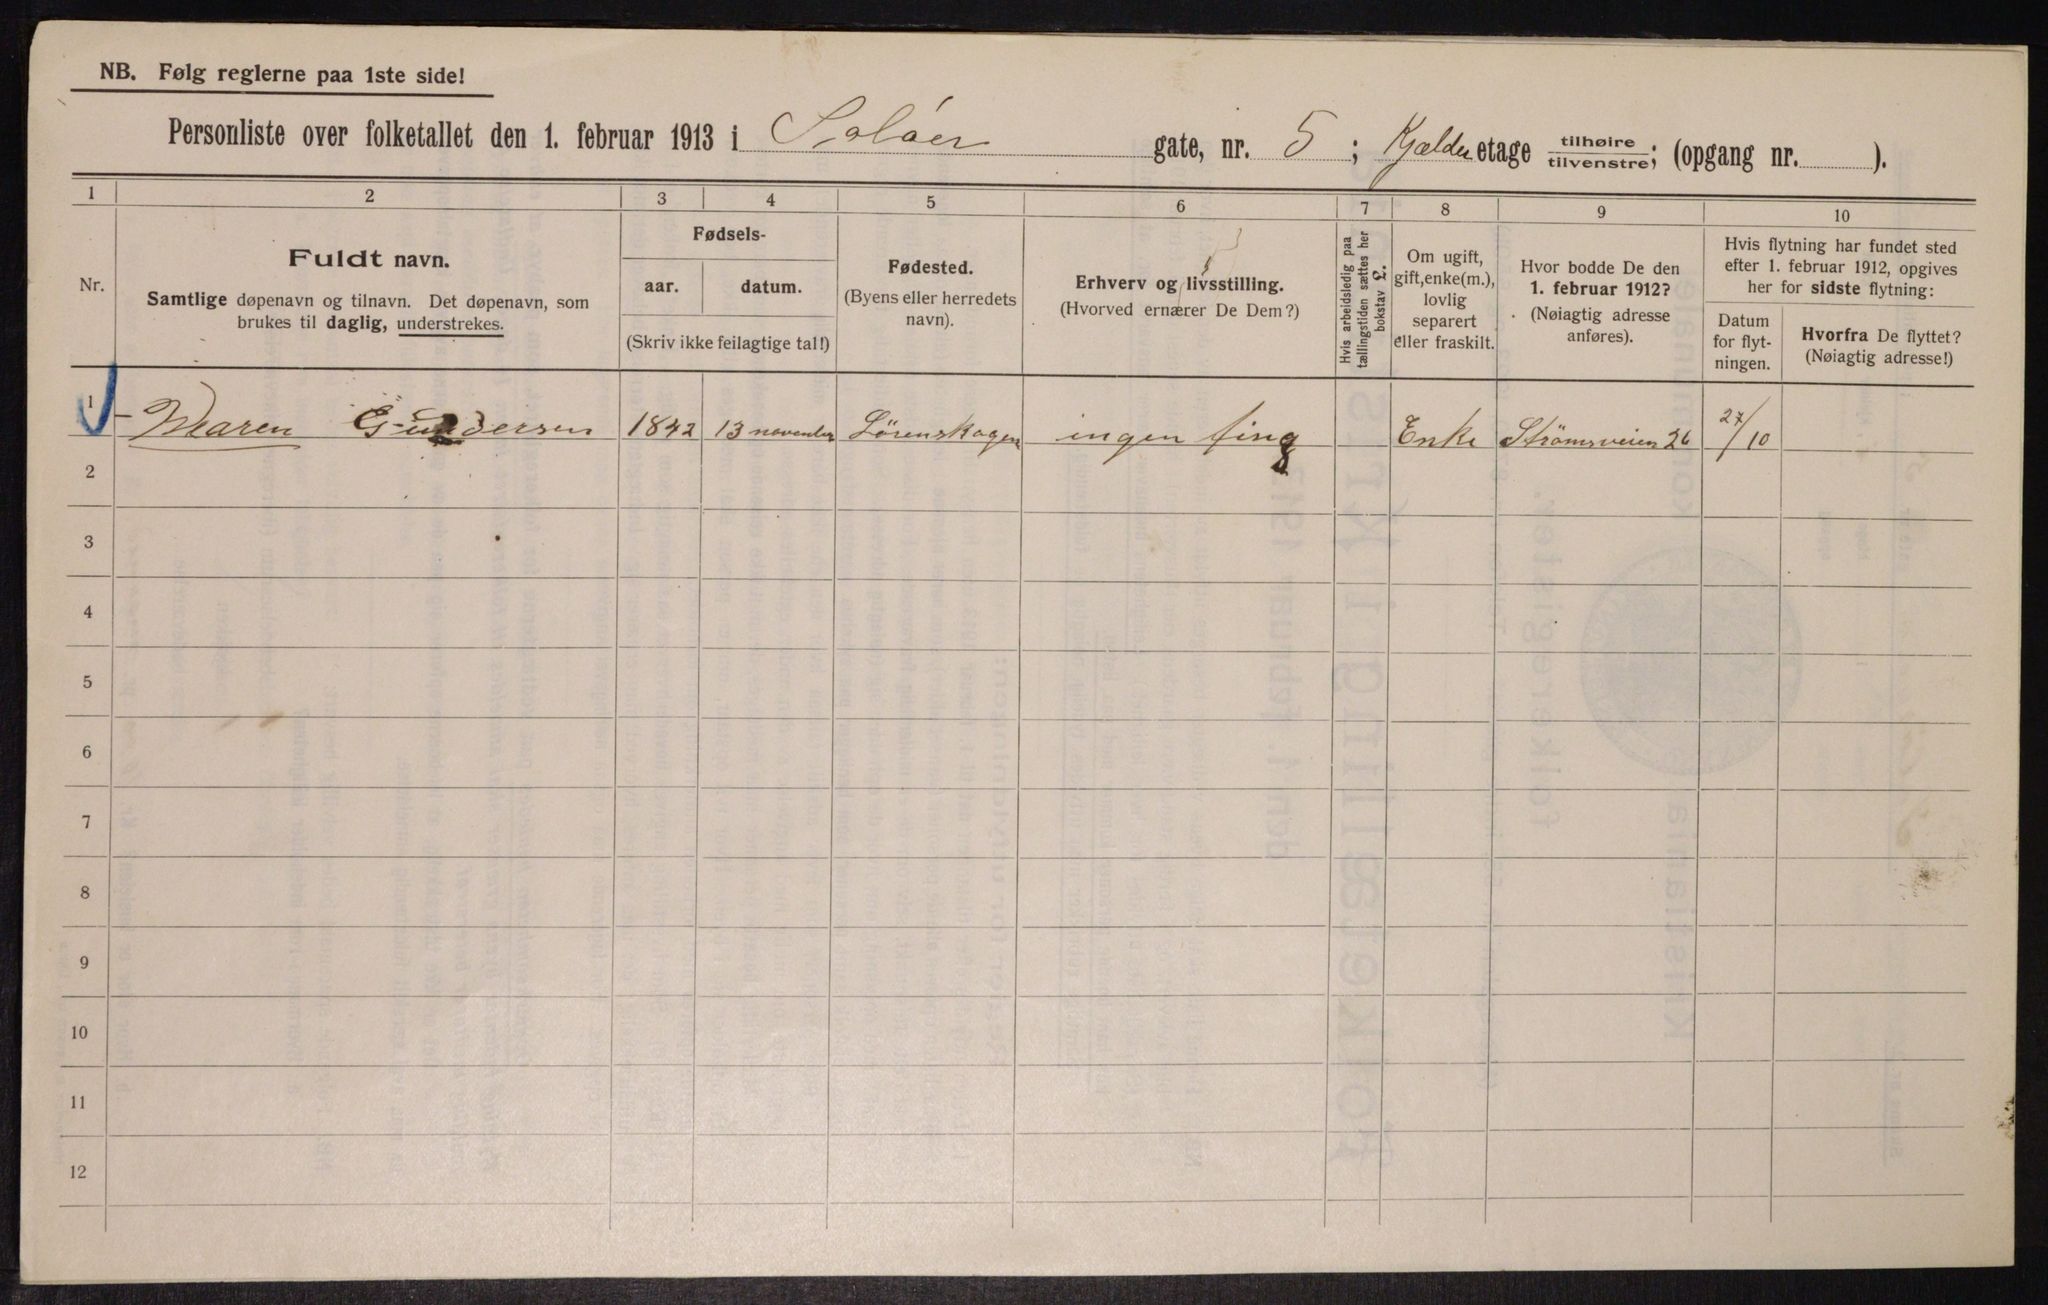 NB. Følg reglerne paa 1ste side!
Personliste over folketallet den 1. februar 1913 i Soløer gate, nr. 5 ; Kjælder etage tilhøire/tilvenstre; (opgang nr. ).
1 2 3 4 5 6 7 8 9 10
Nr.
Fuldt navn.
Samtlige døpenavn og tilnavn. Det døpenavn, som
brukes til daglig, understrekes.
Fødsels-
aar. datum.
(Skriv ikke feilagtige tal!)
Fødested.
(Byens eller herredets
navn).
Erhverv og livsstilling.
(Hvorved ernærer De Dem?)
Hvis arbeidsledig paa
tællingstiden sættes her
bokstav L.
Om ugift,
gift, enke(m.),
lovlig
separert
eller fraskilt.
Hvor bodde De den
1. februar 1912?
(Nøiagtig adresse
anføres).
Hvis flytning har fundet sted
efter 1. februar 1912, opgives
her for sidste flytning:
Datum
for flyt-
ningen.
Hvorfra De flyttet?
(Nøiagtig adresse!)
1 Maren Gundersen 1842 13 november Lørenskogen ingen ting Enke Strömsveien 26 27/10
2
3
4
5
6
7
8
9
10
11
12